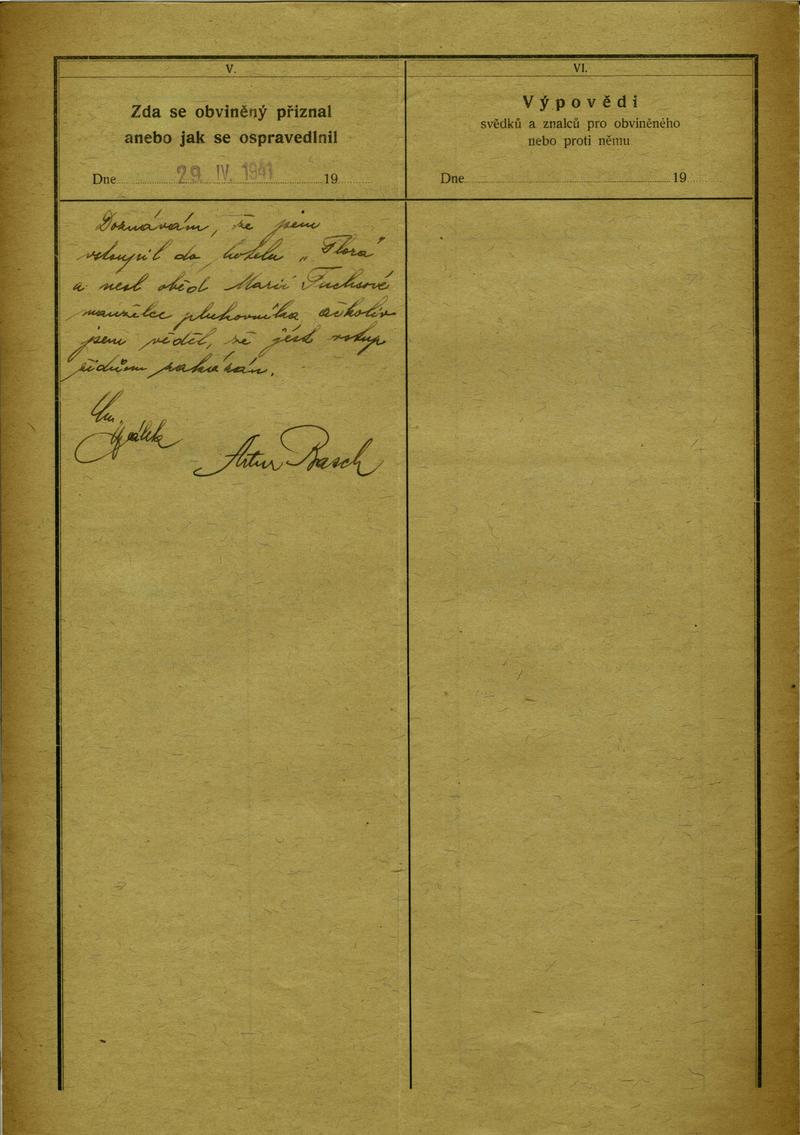 V.
Zda se obviněný přiznal
anebo jak se ospravedlnil
Dne 29. IV. 1941 19
Doznávám, že jsem
vstoupil do hotelu „Flora"
a nesl oběd Marii Fuchsové
manželce plukovníka ačkoliv
jsem věděl, že jest vstup
židům zakázán.
Artur Basch
VI.
Výpovědi
svědků a znalců pro obviněného
nebo proti němu
Dne 19